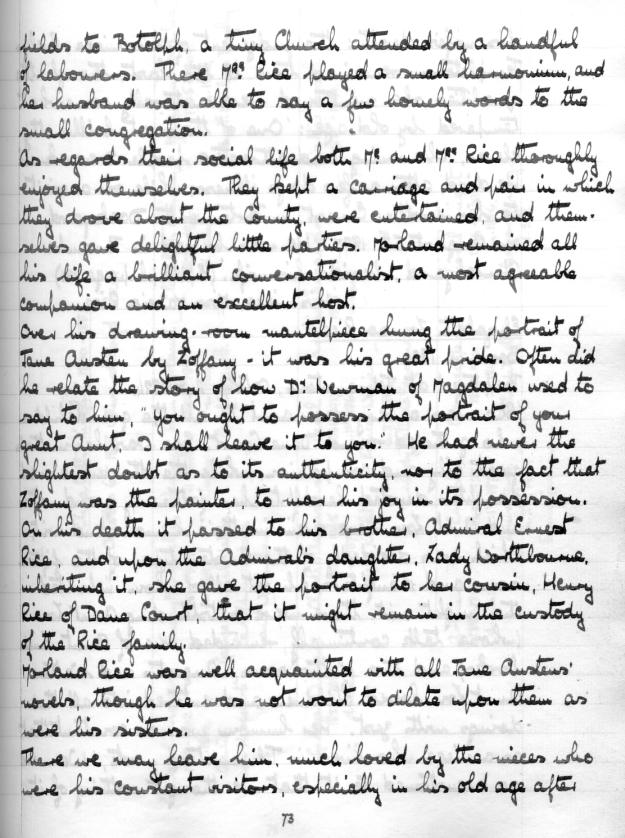 fields to Botolph, a tiny Church attended by a handful
of labourers. There Mrs. Rice played a small harmonium, and
her husband was able to say a few homely words to the
small congregation.
As regards their social life both Mr. and Mrs. Rice thoroughly
enjoyed themselves. They kept a carriage and pair in which
they drove about the County, were entertained, and them-
selves gave delightful little parties. Morland remained all
his life a brilliant conversationalist, a most agreeable
companion and an excellent host.
Over his drawing-room mantelpiece hung the portrait of
Jane Austen by Zoffany - it was his great pride. Often did
he relate the story of how Dr. Newman of Magdalen used to
say to him, "you ought to possess the portrait of your
great Aunt, I shall leave it to you." He had never the
slightest doubt as to its authenticity, nor to the fact that
Zoffany was the painter, to mar his joy in its possession.
On his death it passed to his brother, Admiral Ernest
Rice, and upon the Admiral's daughter, Lady Northbourne,
inheriting it, she gave the portrait to her cousin, Henry
Rice of Dane Court, that it might remain in the custody
of the Rice family.
Morland Rice was well acquainted with all Jane Austens'
novels, though he was not wont to dilate upon them as
were his sisters.
There we may leave him, much loved by the nieces who
were his constant visitors, especially in his old age after
73